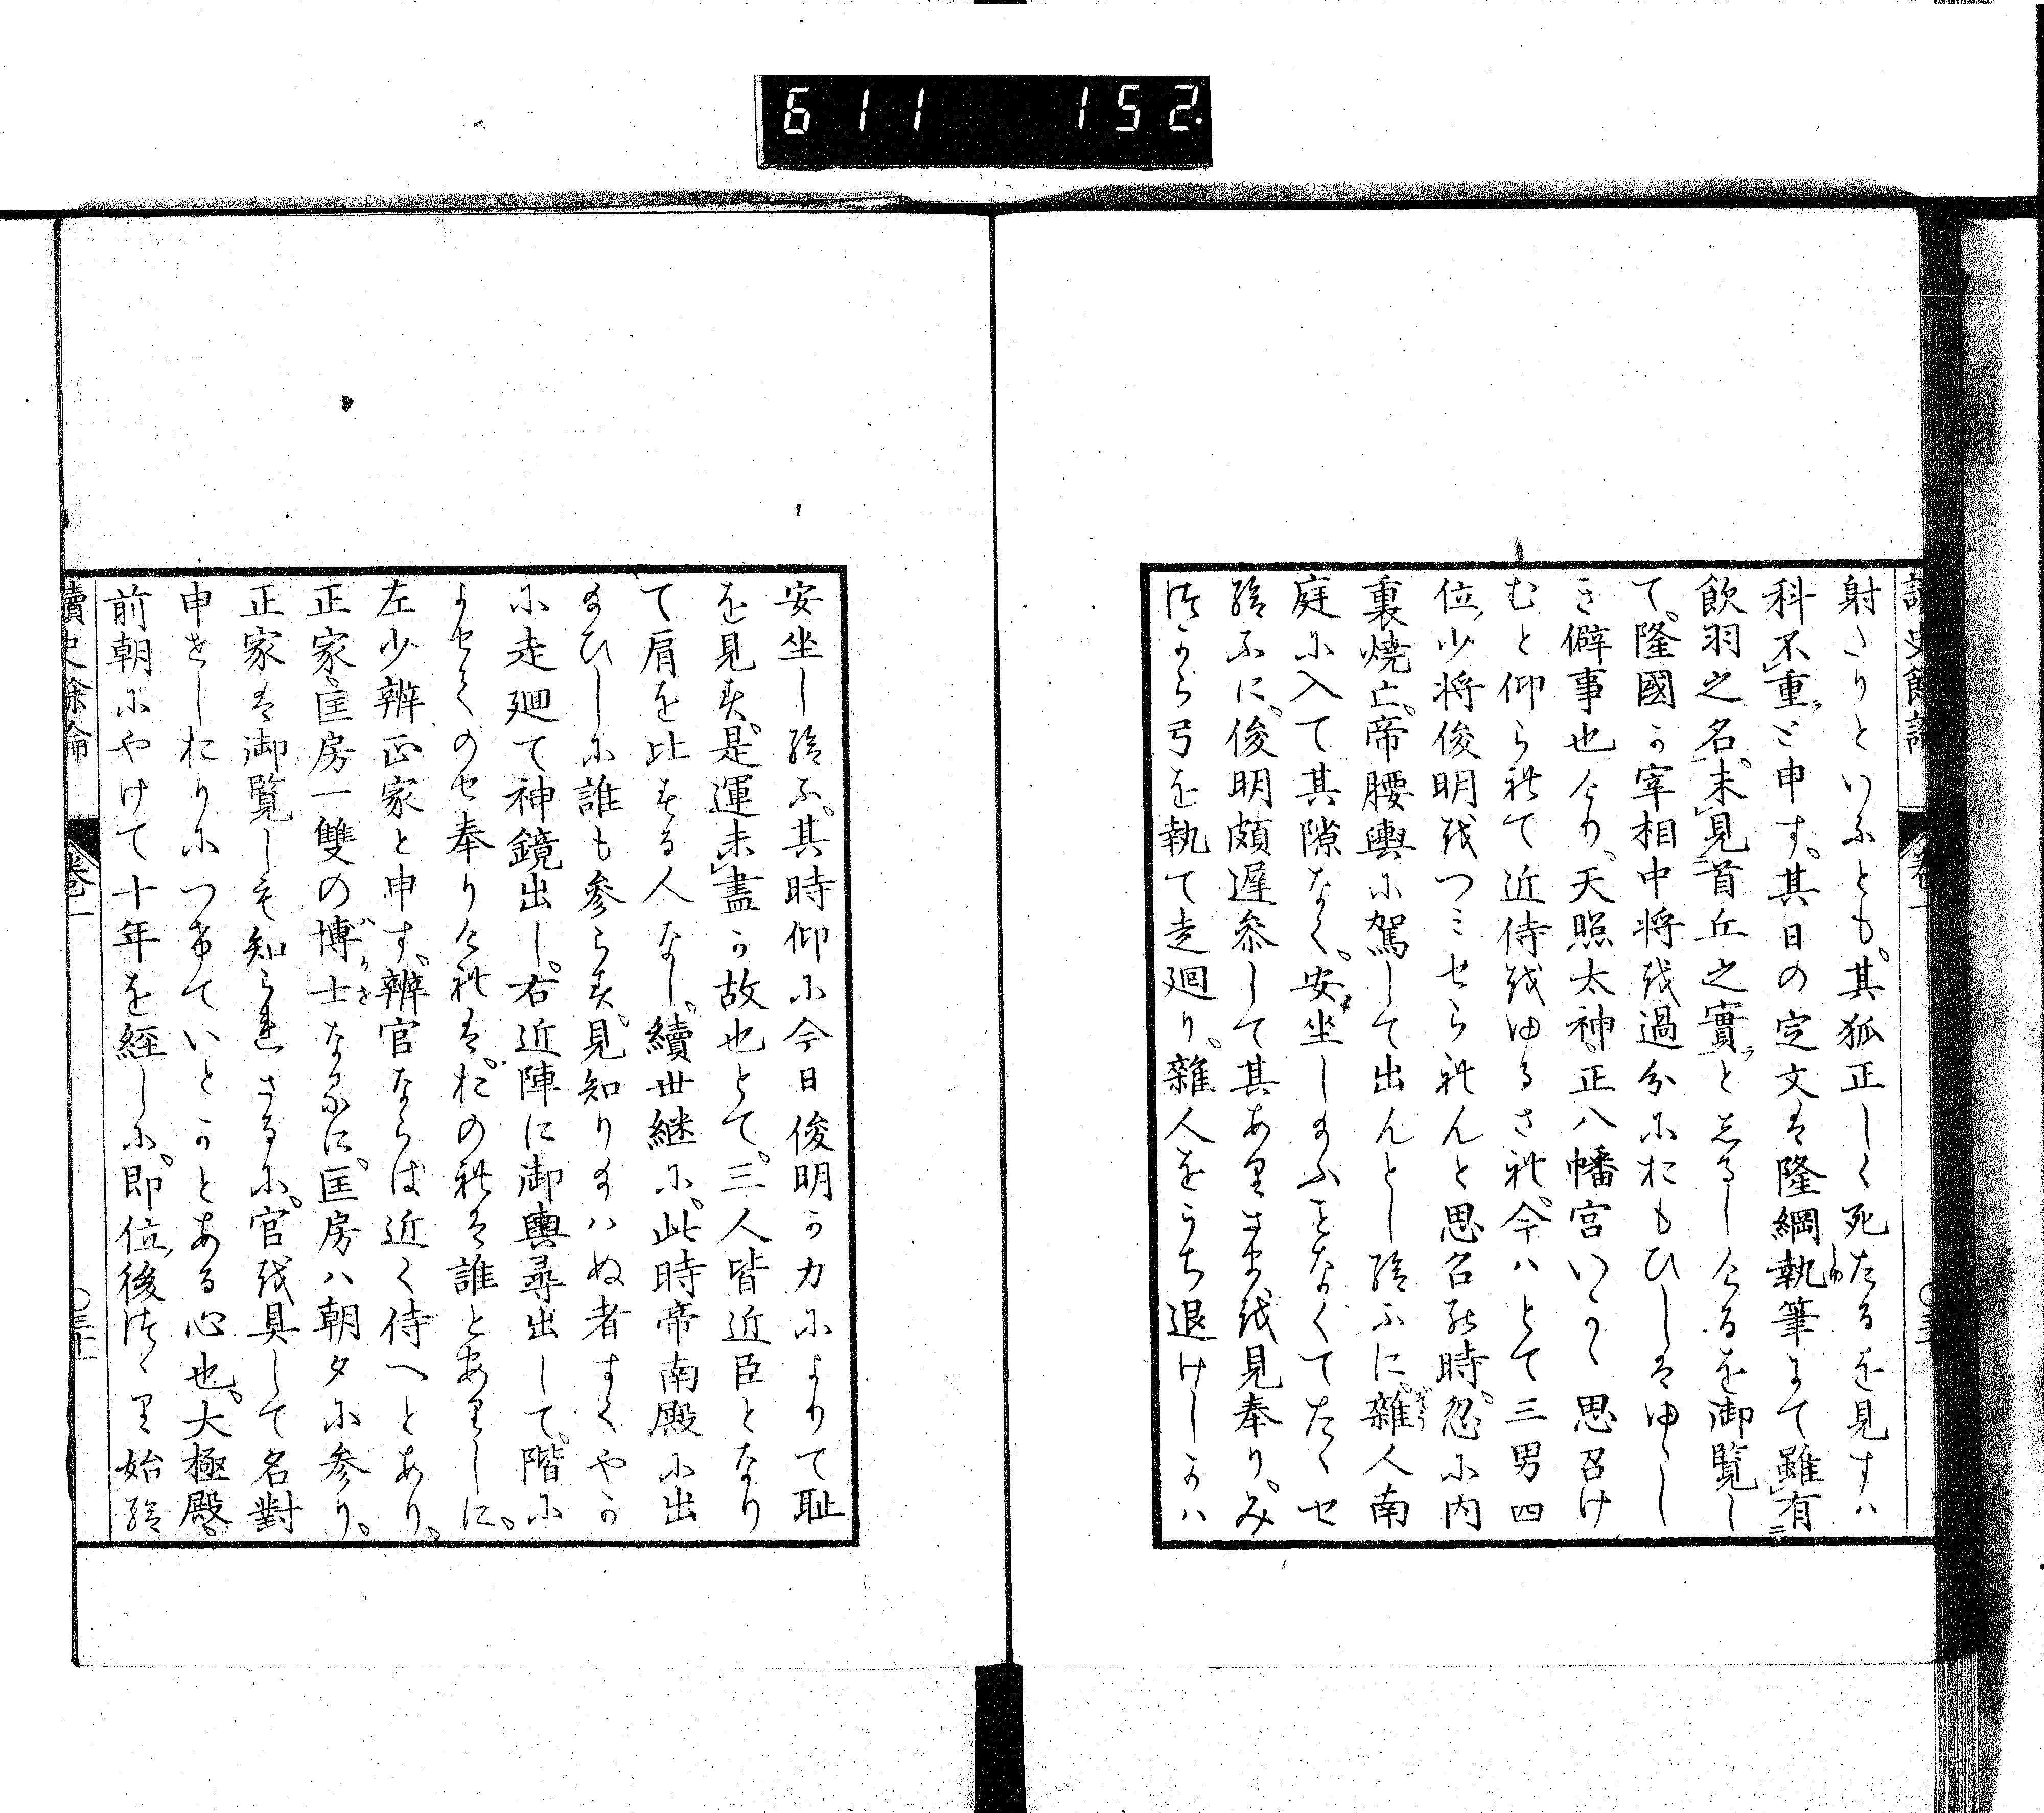 611 152
讀史餘論 卷一
射さりといふとも。其狐正しく死たるを見すハ
科不重と申す。其日の定文は隆綱執筆にて雖有
飲羽之名。未見首丘之實と志るし今るを御覧し
て。隆國か宰相中将を過分におもひしはゆゝし
き僻事也今り。天照太神。正八幡宮いかゝ思召け
むと仰られて近侍をゆるされ。今ハとて三男四
位少将俊明をつミせられんと思召れ時。忽に内
裏焼亡。帝腰輿に駕して出んとし給ふに。雑人南
庭に入て其隙なく。安坐しまふ事なくてたゝせ
給ふに。俊明頗遅参して其ありさまを見奉り。み
つから弓を執て走廻り。雑人をうち退けしかハ
安坐し給ふ。其時仰に今日俊明か力によりて耻
を見す。是運未盡か故也とて。三人皆近臣となり
て肩を比する人なし。續世継に。此時帝南殿に出
まひしに誰も参らす。見知りまハぬ者すくやか
に走廻て神鏡出し。右近陣に御輿尋出して。階に
よせてのせ奉り今れは。おの礼は誰とありしに。
左少辨正家と申す。辨官ならば近く侍へとあり。
正家。匡房一雙の博士なるに。匡房ハ朝夕に参り。
正家は御覧しも知られさるに。官を具して名對
申さしおりにつきていとかとある心也。大極殿。
前朝にやけて十年を經しに。即位後つゝり始給
讀史餘論 卷一